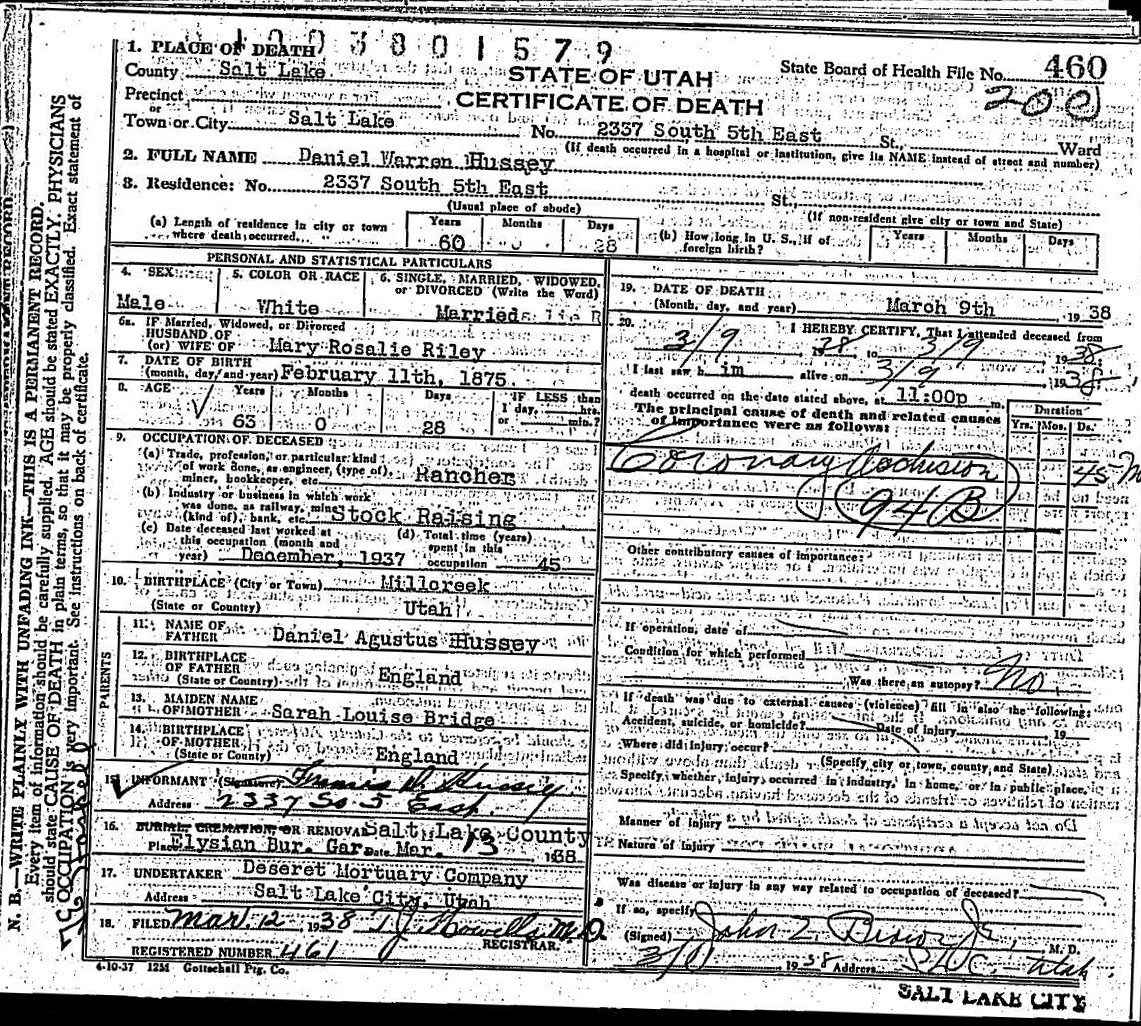 1003801579
1. PLACE OF DEATH
County Salt Lake
STATE OF UTAH
State Board of Health File No. 460
Precinct
CERTIFICATE OF DEATH
200
or
Town or City Salt Lake No. 2337 South 5th East St. Ward
(If death occurred in a hospital or institution, give its NAME instead of street and number)
2. FULL NAME Daniel Warren Hussey
3. Residence: No. 2337 South 5th East St.
(Usual place of abode)
(If non-resident give city or town and State)
(a) Length of residence in city or town where death occurred
Years Months Days
60 0 28
(b) How long in U. S., if of foreign birth?
Years Months Days
PERSONAL AND STATISTICAL PARTICULARS
4. SEX
Male
5. COLOR OR RACE
White
6. SINGLE, MARRIED, WIDOWED, or DIVORCED (Write the Word)
Married
6a. IF Married, Widowed, or Divorced
HUSBAND OF
(or) WIFE OF Mary Rosalie Riley
7. DATE OF BIRTH
(month, day, and year) February 11th, 1875
8. AGE
Years Months Days
IF LESS than
1 day, hrs.
or min.?
63 0 28
9. OCCUPATION OF DECEASED
(a) Trade, profession, or particular kind
of work done, as engineer, (type of),
miner, bookkeeper, etc. Rancher
(b) Industry or business in which work
was done, as railway, mine
(kind of), bank, etc. Stock Raising
(c) Date deceased last worked at
this occupation (month and
year) December, 1937
(d) Total time (years)
spent in this
occupation 45
10. BIRTHPLACE (City or Town) Millcreek
(State or Country) Utah
PARENTS
11. NAME OF
FATHER Daniel Agustus Hussey
12. BIRTHPLACE
OF FATHER
(State or Country) England
13. MAIDEN NAME
OF MOTHER Sarah Louise Bridge
14. BIRTHPLACE
OF MOTHER
(State or Country) England
15. INFORMANT (Signature)
Address 2337 So. 5 East
16. BURIAL, CREMATION, OR REMOVAL Salt Lake County
Place Elysian Bur. Gar. Date Mar. 13 1938
17. UNDERTAKER Deseret Mortuary Company
Address Salt Lake City, Utah
18. FILED Mar. 12 1938 T. J. Howells M.D.
REGISTRAR.
REGISTERED NUMBER 461
4-10-37 12M Gottschall Ptg. Co.
19. DATE OF DEATH
(Month, day, and year) March 9th 1938
20. I HEREBY CERTIFY, That I attended deceased from
3/9 1938 to 3/9 1938
I last saw him alive on 3/9 1938
death occurred on the date stated above, at 11:00p m.
The principal cause of death and related causes
of importance were as follows:
Duration
Yrs. Mos. Ds.
Coronary Occlusion 45 M
94B
Other contributory causes of importance:
If operation, date of
Condition for which performed
Was there an autopsy? No.
If death was due to external causes (violence) fill in also the following:
Accident, suicide, or homicide? Date of injury 19
Where did injury occur?
(Specify city or town, county, and State)
Specify whether injury occurred in industry, in home, or in public place,
Manner of injury
Nature of injury
Was disease or injury in any way related to occupation of deceased?
If so, specify
(Signed) John Z. Brown Jr, M. D.
1938 Address SLC - Utah
SALT LAKE CITY
N. B.—WRITE PLAINLY WITH UNFADING INK—THIS IS A PERMANENT RECORD.
Every item of information should be carefully supplied. AGE should be stated EXACTLY. PHYSICIANS
should state CAUSE OF DEATH in plain terms, so that it may be properly classified. Exact statement of
OCCUPATION is very important. See instructions on back of certificate.